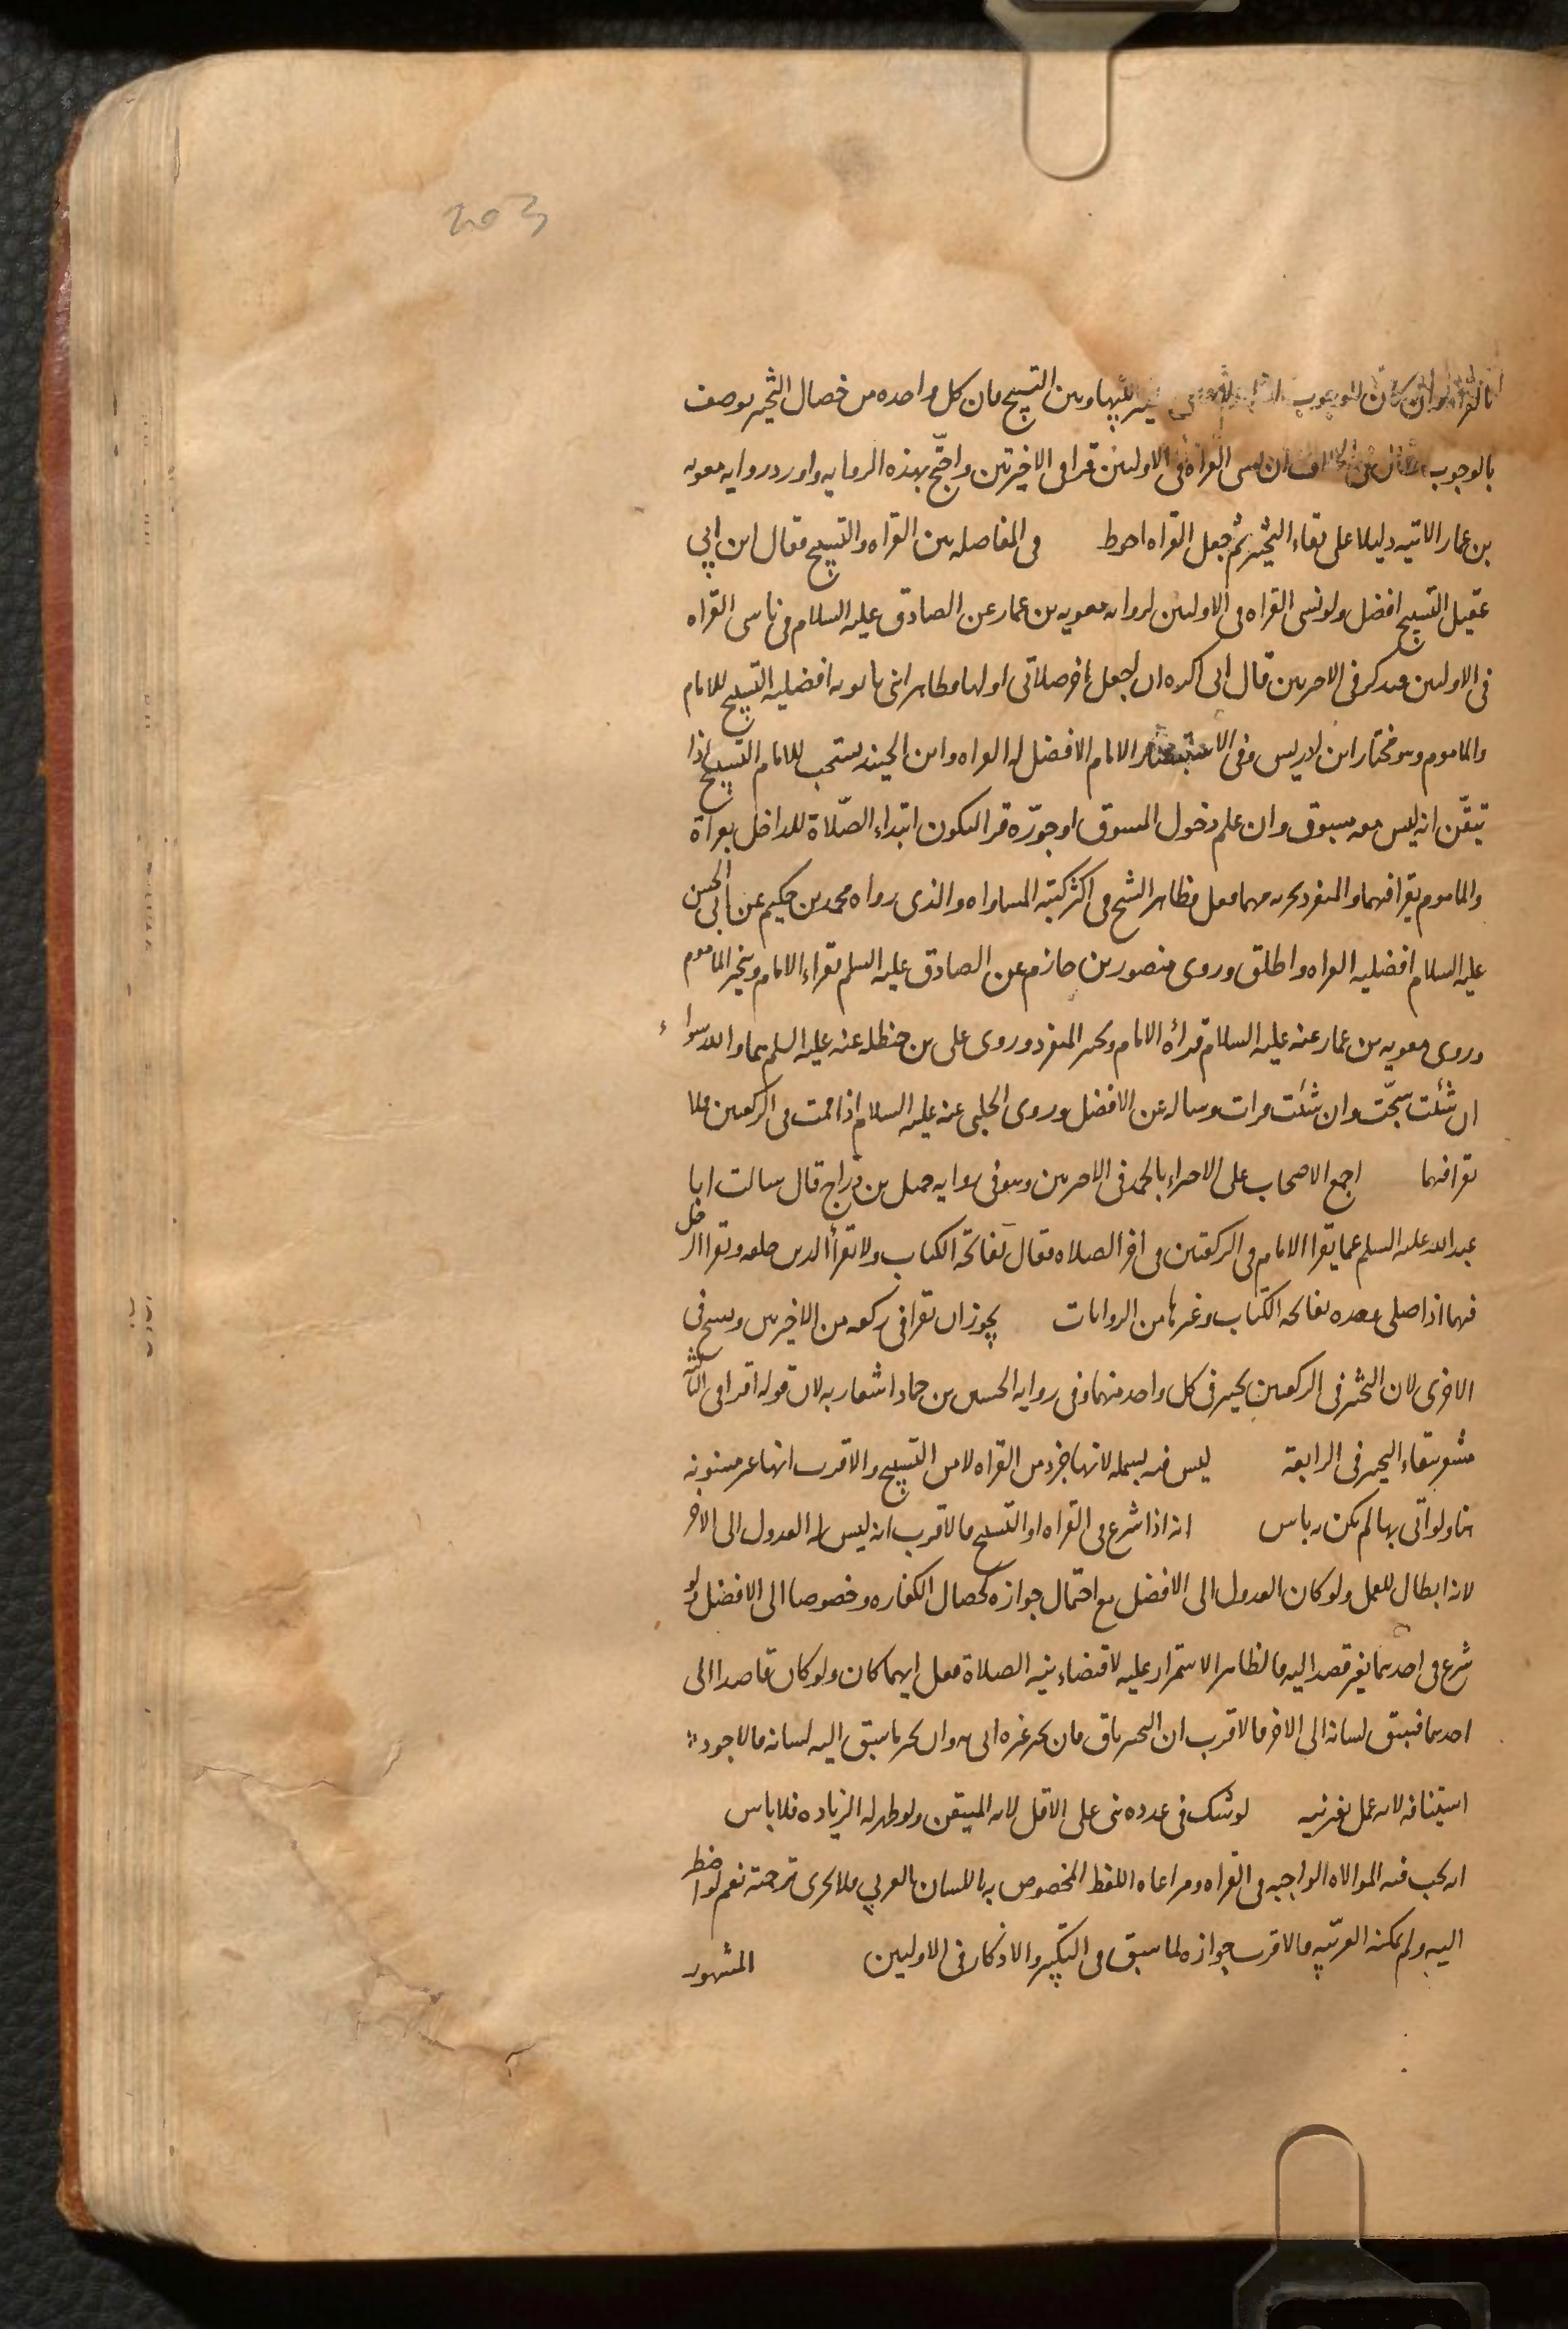 203
بالقراه وان كان للوجوب بينها وبين التسبيح فان كل واحده من خصال التخيير يوصف
بالوجوب ان نسى القراة فى الاوليين قرا فى الاخيرتين واحتج بهذه الروايه واورد روايه معويه
بن عمار الاتيه دليلا على بقاء التخيير ثم جعل القراه احوط فى المفاضله بين القراه والتسبيح فقال ابن ابي
عقيل التسبيح افضل ولو نسى القراه فى الاوليين لروايه معويه بن عمار عن الصادق عليه السلام فى ناسى القراه
فى الاوليين فيذكر فى الاخريين قال انى اكره ان اجعل اخر صلاتى اولها وظاهر ابنى بابويه افضليه التسبيح للامام
والماموم وهو مختار ابن ادريس وفى الاستبصار الامام الافضل له القراه وابن الجنيد يستحب للامام التسبيح اذا
تيقّن انه ليس معه مسبوق وان علم دخول المسبوق او جوّزه قرا ليكون ابتداء الصّلاة للداخل بقراة
والماموم يقرا فيهما والمنفرد يجزيه مهما فعل وظاهر الشيخ فى اكثر كتبه المساواه والذى رواه محمد بن حكيم عن ابى الحسن
عليه السلام افضليه القراه واطلق وروى منصور بن حازم عن الصادق عليه السلم يقراء الامام ويتخير الماموم
وروى معويه بن عمار عنه عليه السلام قراءة الامام وتخير المنفرد وروى على بن حنظله عنه عليه السلم هما والله سواء
ان شئت سبّحت وان شئت قرات وساله عن الافضل وروى الحلبى عنه عليه السلام اذا قمت فى الركعتين فلا
تقرا فيهما اجمع الاصحاب على الاجزاء بالحمد فى الاخريين وهو فى روايه جميل بن درّاج قال سالت ابا
عبد الله عليه السلم عما يقرا الامام فى الركعتين فى اخر الصلاه فقال بفاتحة الكتاب ولا تقرأ الذين خلفه ويقرا الرجل
فيهما اذا صلى وحده بفاتحه الكتاب وغيرها من الروايات يجوز ان تقرا فى ركعه من الاخيرتين وتسبح فى
الاخرى لان التخير فى الركعتين تخيير فى كل واحد منهما وفى روايه الحسين بن حماد اشعار به لان قوله اقرا فى الثالثه
مشعر ببقاء التخيير فى الرابعة ليس فيه بسمله لانها جزء من القراه لا من التسبيح والاقرب انها غير مسنونه
هنا ولو اتى بها لم يكن به باس انه اذا شرع فى القراه او التسبيح فالاقرب انه ليس له العدول الى الاخر
لانه ابطال للعمل ولو كان العدول الى الافضل مع احتمال جوازه كخصال الكفاره وخصوصا الى الافضل ولو
شرع فى احدهما بغير قصد اليه فالظاهر الاستمرار عليه لاقتضاء نيه الصلاة فعل ايهما كان ولو كان قاصدا الى
احدهما فسبق لسانه الى الاخر فالاقرب ان التخيير باق فان تخير غيره اتى به وان تخير ما سبق اليه لسانه فالاجود
استينافه لانه عمل بغير نيه لو شك فى عدده بنى على الاقل لانه المتيقن ولو ظهر له الزياده فلا باس
انه يجب فيه الموالاه الواجبه فى القراه ومراعاه اللفظ المخصوص به باللسان العربي فلا تجزى ترجمته نعم لو اضطر
اليه ولم يمكنه العربّيه فالاقرب جوازه لما سبق فى التكبير والاذكار فى الاوليين المشهور